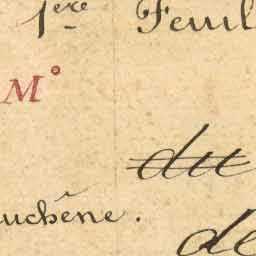 1ère Feuil
M°
du
uchêne.
de